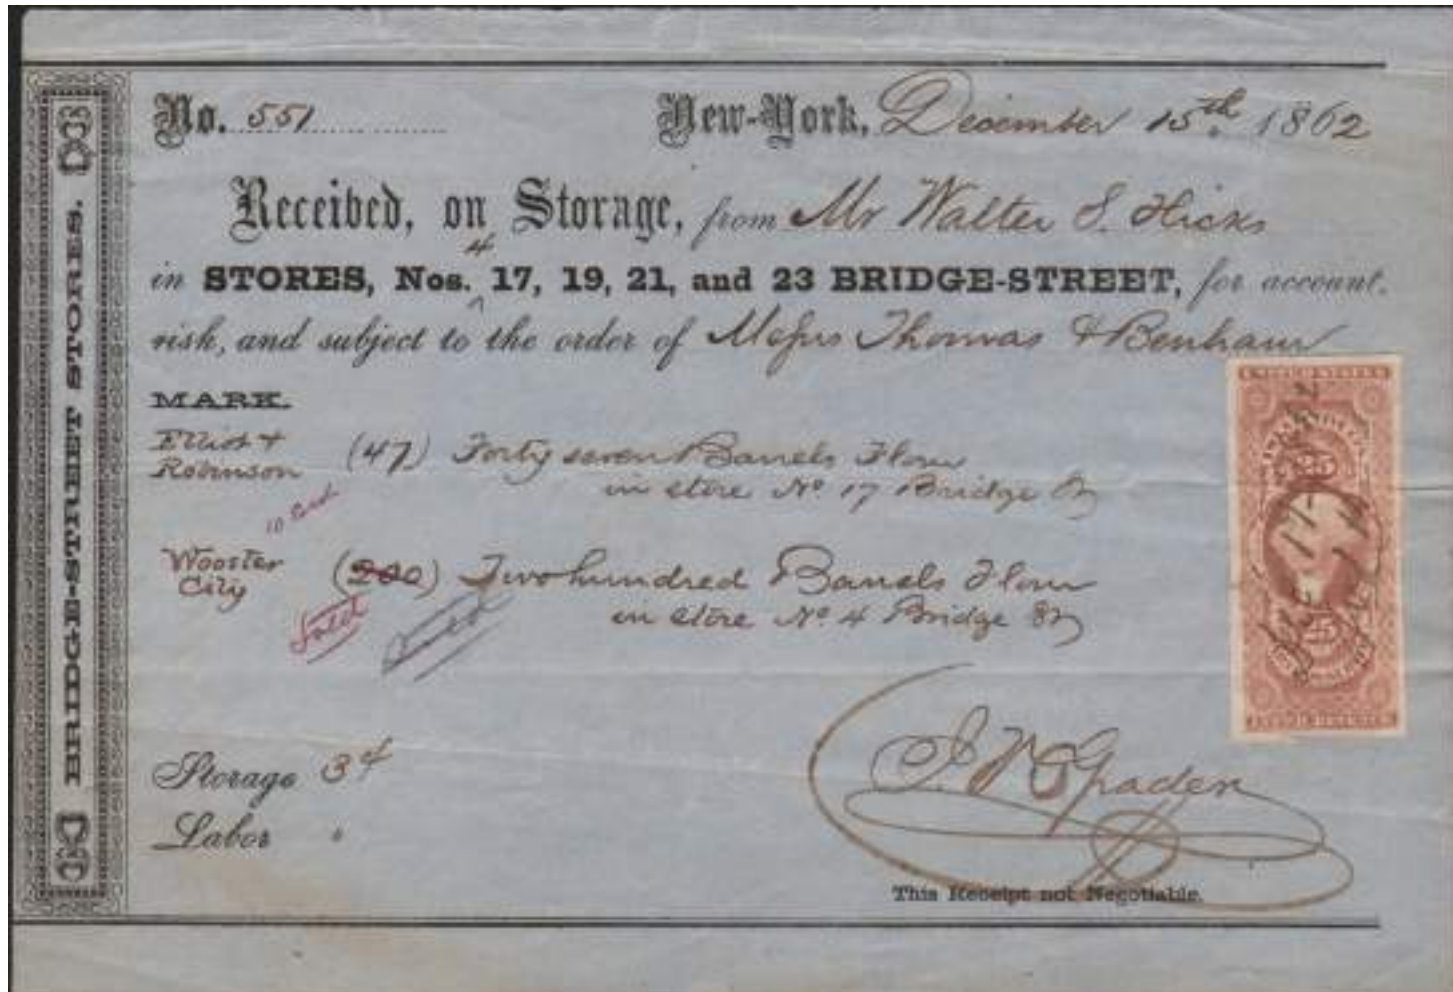 BRIDGE-STREET STORES.
No. 551 New-York, December 15th. 1862
Received, on Storage, from Mr Walter S. Hicks
4
in STORES, Nos. ^ 17, 19, 21, and 23 BRIDGE-STREET, for account,
risk, and subject to the order of Messrs Thomas & Benham
MARK.
Elliot &
Robinson (47) Forty seven Barrels Flour
in store No 17 Bridge St
Wooster
City (200) Two hundred Barrels Flour
in store No 4 Bridge St
Sold
Storage 34
Labor "
This Receipt not Negotiable.
UNITED STATES
25
25